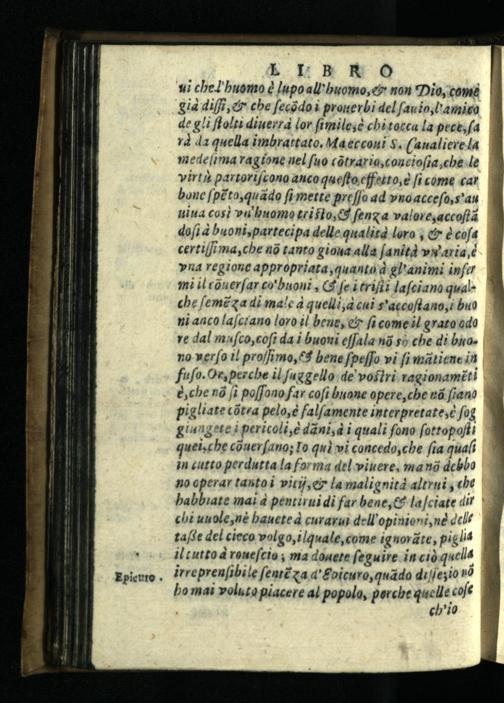 LIBRO
ui che l'huomo è lupo all'huomo, & non Dio, come
già dissi, & che secõdo i prouerbi del sauio, l'amico
de gli stolti diuerrà lor simile, è chi tocca la pece, sa
rà da quella imbrattato. Maeccoui S. Caualiere la
medesima ragione nel suo cõtrario, conciosia, che le
virtù partoriscono anco questo effetto, è si come car
bone spẽto, quãdo si mette presso ad vno acceso, s'au
uiua così vn'huomo tristo, & senza valore, accostã
dosi à buoni, partecipa delle qualità loro, & è cosa
certissima, che nõ tanto gioua alla sanità vn'aria, è
vna regione appropriata, quanto à gl'animi infer
mi il cõuersar co'buoni, & se i tristi lasciano qual-
che semẽza di male à quelli, à cui s'accostano, i buo
ni anco lasciano loro il bene, & si come il grato odo
re dal musco, cosi da i buoni essala nõ sò che di buo-
no verso il prossimo, & bene spesso vi si mãtiene in
fuso. Or, perche il suggello de' vostri ragionamẽti
è, che nõ si possono far cosi buone opere, che nõ siano
pigliate cõtra pelo, è falsamente interpretate, è sog
giungete i pericoli, è dãni, à i quali sono sottoposti
quei, che cõuersano; Io quì vi concedo, che sia quasi
in tutto perdutta la forma del viuere, ma nõ debbo
no operar tanto i vitij, & la malignità altrui, che
habbiate mai à pentirui di far bene, & lasciate dir
chi uuole, nè hauete à curarui dell'opinioni, nè delle
tasse del cieco volgo, ilquale, come ignorãte, piglia
il tutto à rouescio; ma douete seguire in ciò quella
Epicuro. irreprensibile sentẽza d'Epicuro, quãdo disse; io nõ
ho mai voluto piacere al popolo, perche quelle cose
ch'io